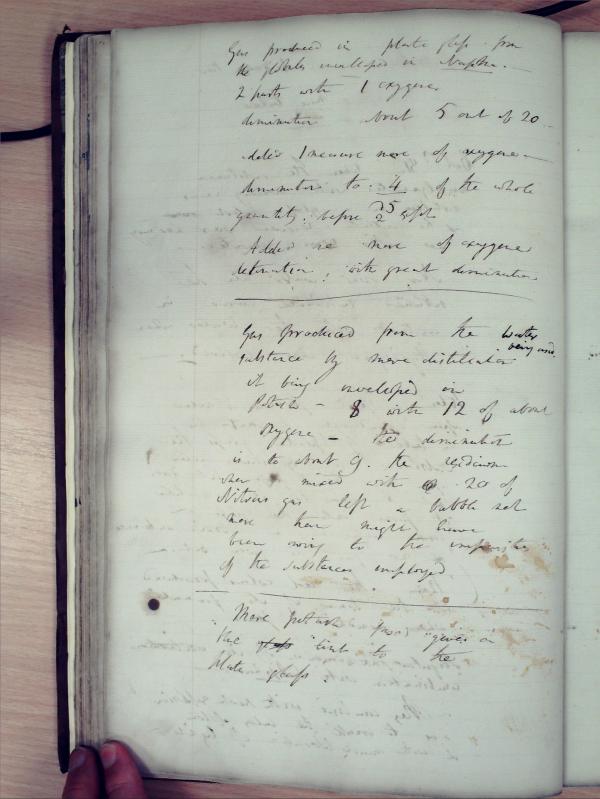 Gas produced in plate glass from
the globules enveloped in Naptha.
2 parts with 1 oxygene
diminution about 5 out of 20
added 1 measure more of oxygene
diminution to 4 of the whole
quantity. before 25
Added more of oxygene
detonation, with great diminution
Gas produced from the water
being used
substance by mere distillation
it being enveloped in
Potash - 8 with 12 of about
oxygene - the diminution
is to about 9. the residuum
when mixed with 20 of
Nitrous gas left a bubble not
more than might have
been owing to the impurities
of the substances employed
Mere potash gives a
blue tint to the
plate glass.